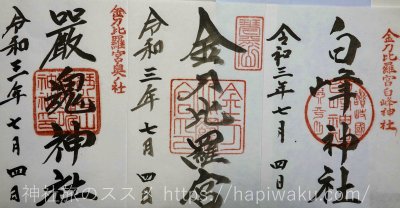 金刀比羅宮白峰神社
白峰神社
令和三年七月四日
金刀比羅宮
令和三年七月四日
金刀比羅宮奥社
嚴魂神社
令和三年七月四日
神社旅のススメ https://hapiwaku.com/